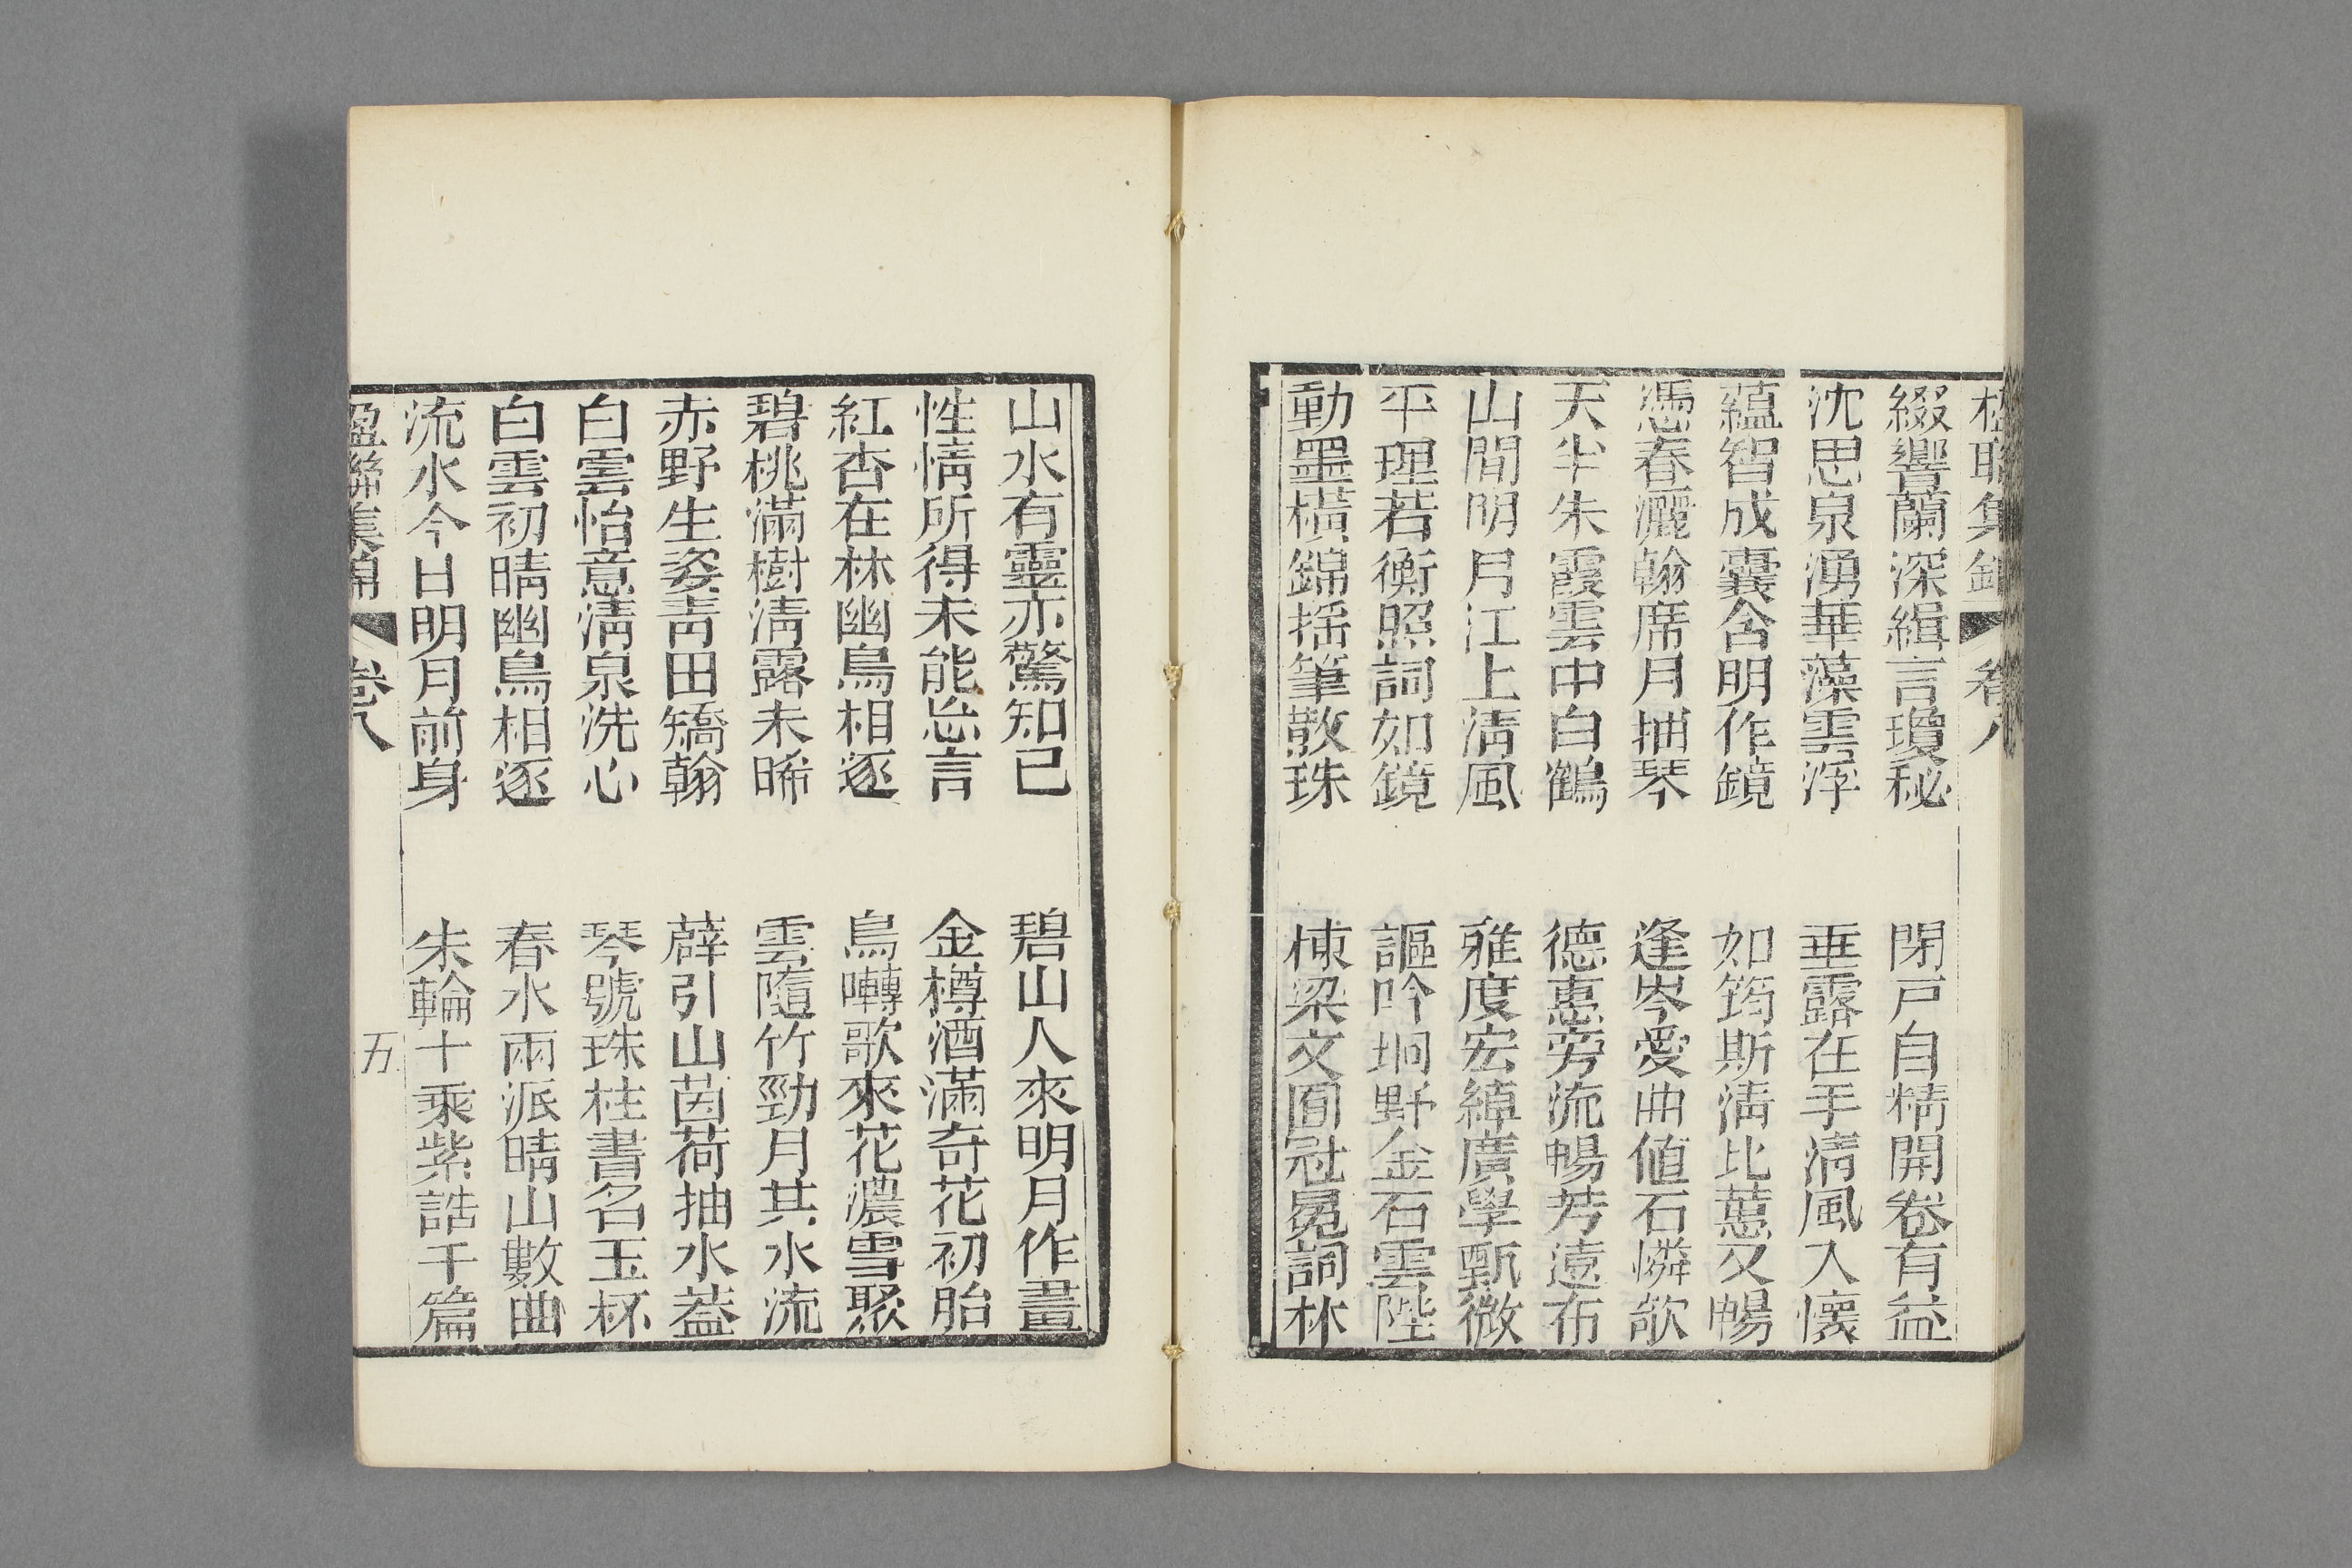 聯集錦 卷八
綴響蘭深緝言瓊秘 閉戸自精開卷有益
沈思泉湧華藻雲浮 垂露在手淸風入懷
蘊智成囊含明作鏡 如筠斯淸比蕙又暢
憑春灑翰席月抽琴 逢岑愛曲値石憐欹
天半朱霞雲中白鶴 德惠旁流暢芳遠布
山間明月江上淸風 雅度宏綽廣學甄微
平理若衡照詞如鏡 謳吟坰野金石雲陛
動墨橫錦揺筆散珠 棟梁文囿冠冕詞林
山水有靈亦驚知己 碧山人來明月作畫
性情所得未能忘言 金樽酒滿奇花初胎
紅杏在林幽鳥相逐 鳥囀歌來花濃雪聚
碧桃滿樹淸露未晞 雲隨竹勁月共水流
赤野生姿靑田矯翰 薜引山茵荷抽水葢
白雲怡意淸泉洗心 琴號珠柱書名玉杯
白雲初晴幽鳥相逐 春水兩派晴山數曲
流水今日明月前身 朱輪十乘紫誥千篇
楹聯集錦 卷八 五